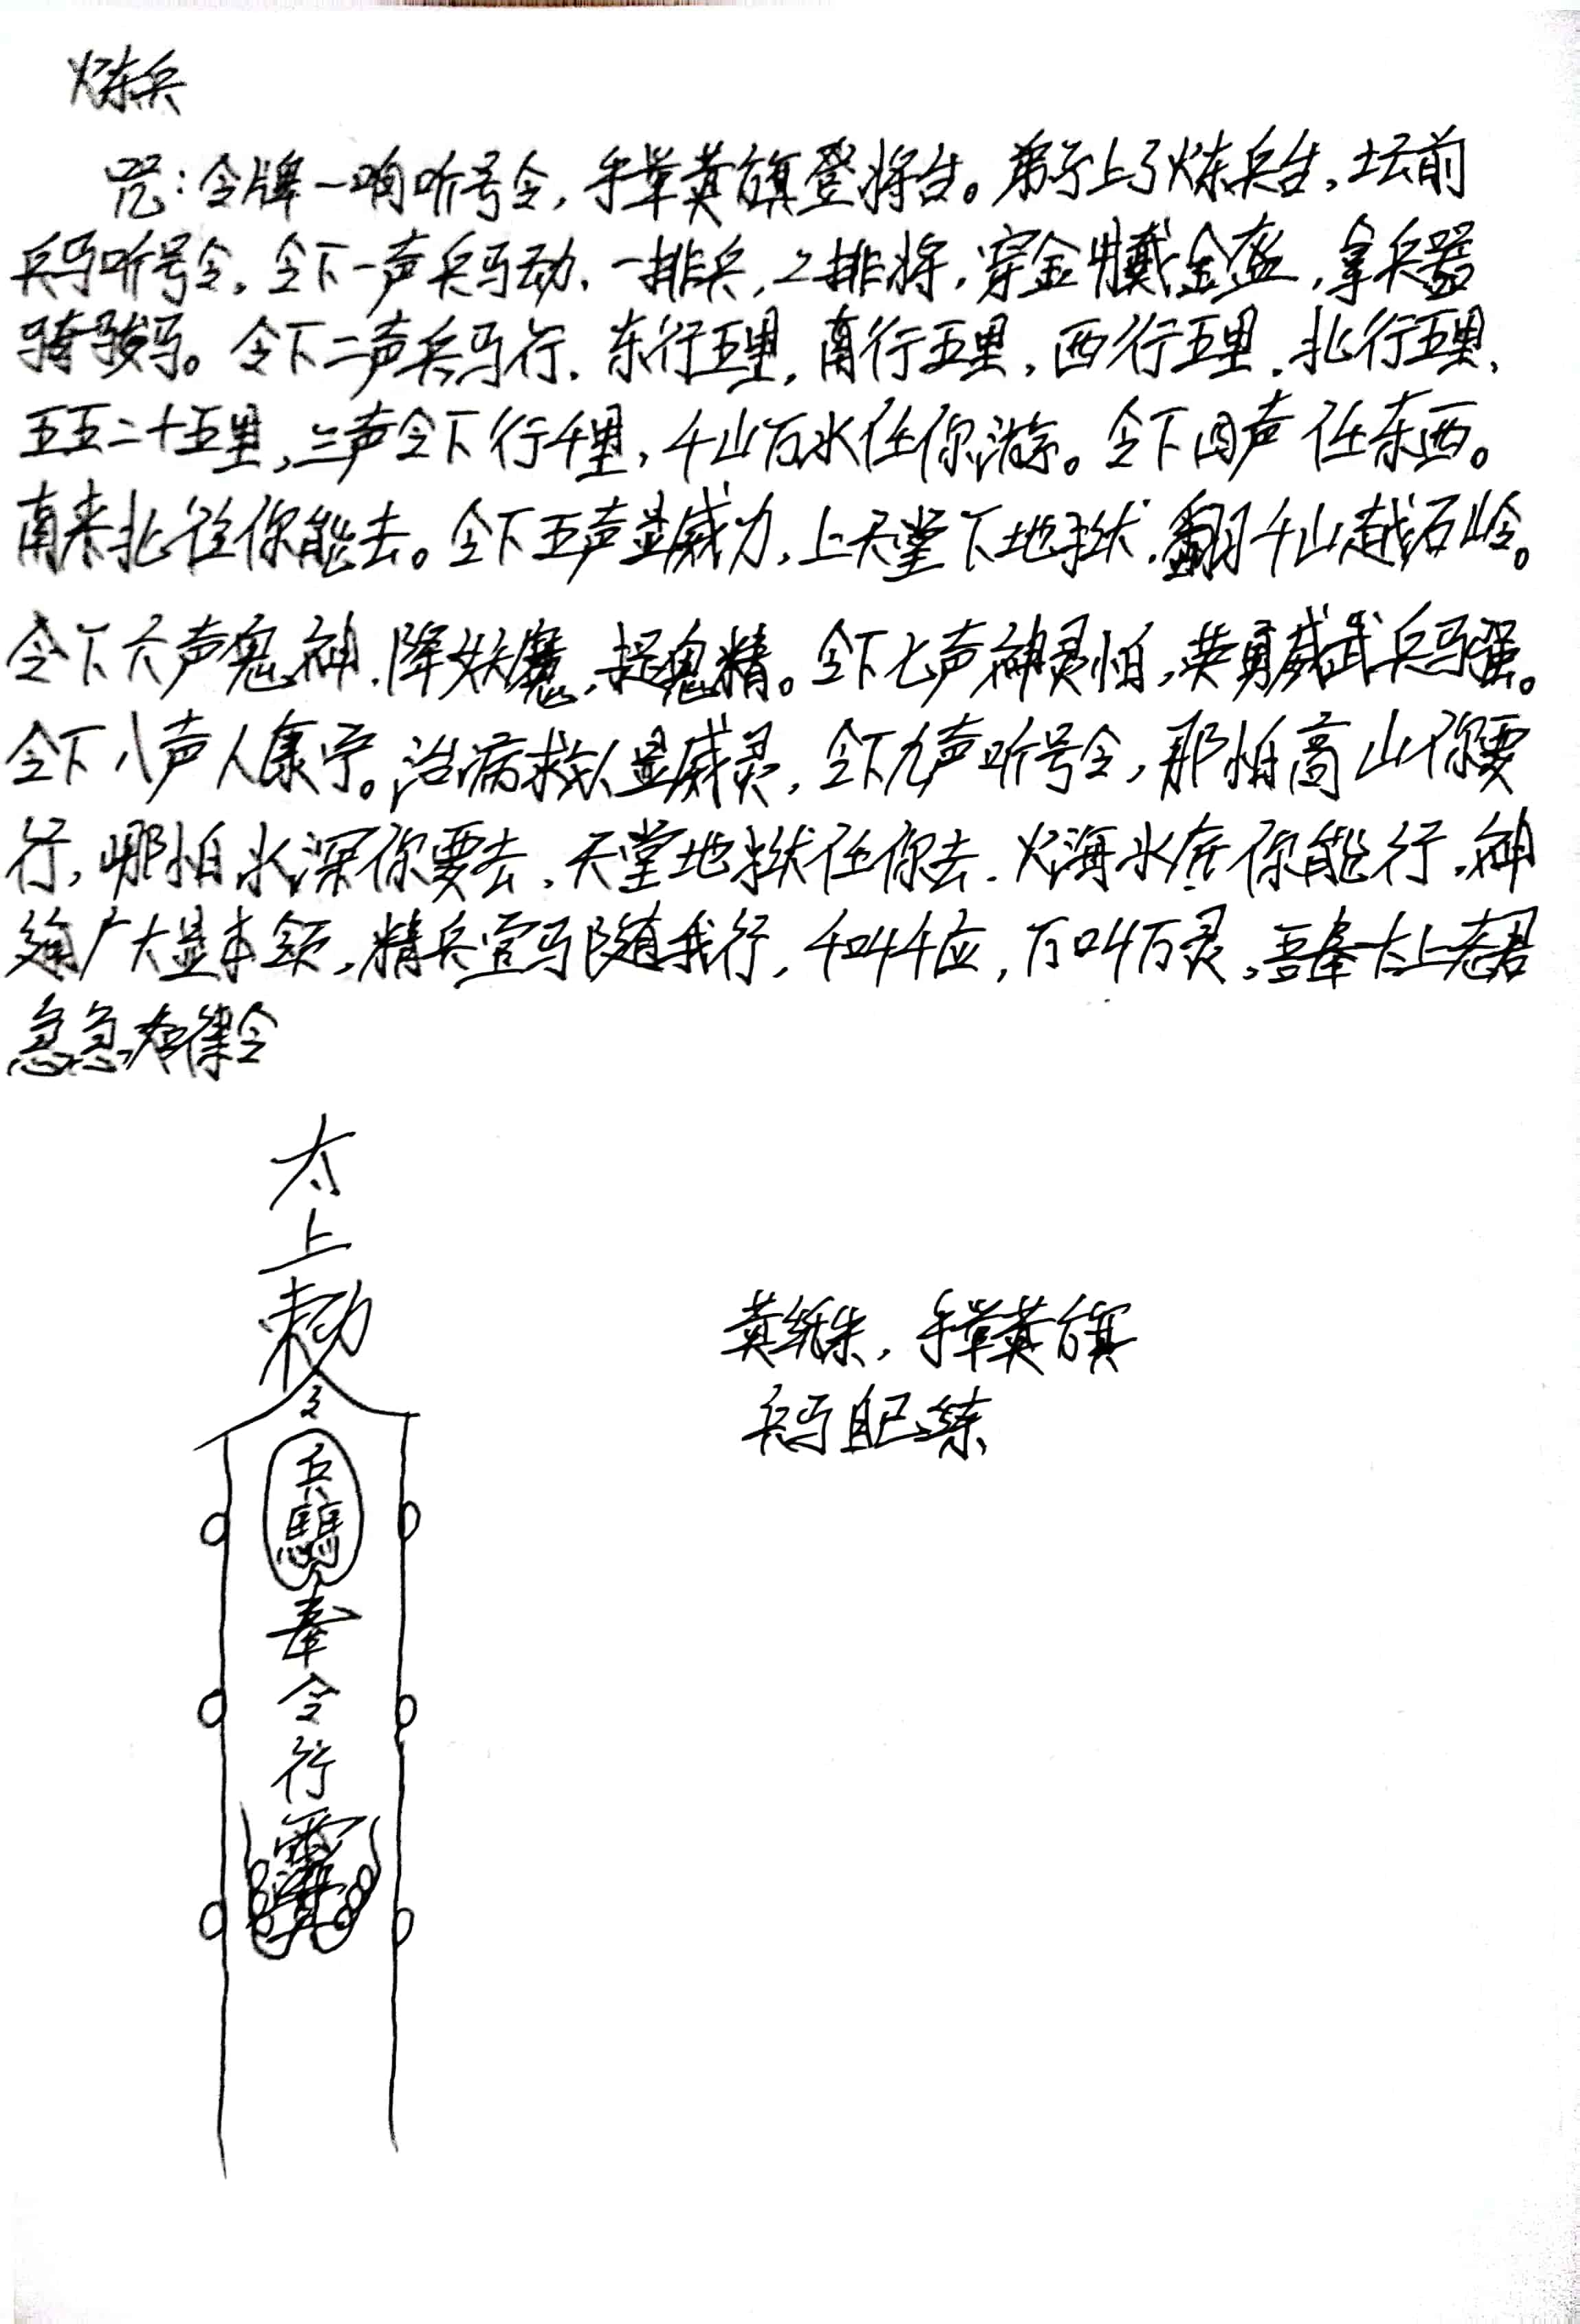 炼兵
咒：令牌一响听号令，手拿黄旗登将台。弟子上了炼兵台，坛前
兵马听号令。令下一声兵马动，一排兵，2排将，穿金 戴金盔，拿兵器
骑骏马。令下二声兵马行，东行五里，南行五里，西行五里，北行五里，
五五二十五里，三声令下行千里，千山万水任你游。令下四声任东西。
南来北往你能去。令下五声显威力，上天堂下地狱，翻千山越石岭。
令下六声鬼神，降妖魔，捉鬼精。令下七声神灵怕，英勇威武兵马强。
令下八声人康宁。治病救人显威灵，令下九声听号令，那怕高山你要
行，哪怕水深你要去，天堂地狱任你去，火海水底你能行，神
通广大显本领，精兵官马随我行，千叫千应，万叫万灵，吾奉太上老君
急急如律令
太
上
勅
令
兵
馬
奉
令
行
黄纸朱，手拿黄旗
兵马自己练